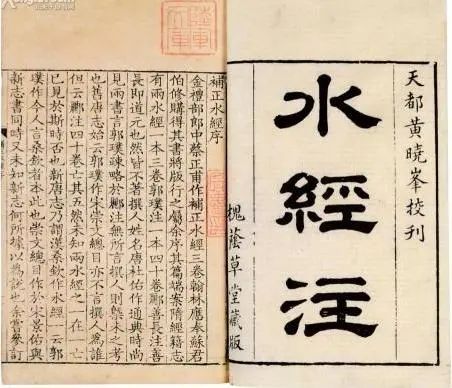 天都黄曉峯校刊
水經注
槐蔭草堂藏版
補正水經序
金禮部郎中蔡正甫作補正水經三卷翰林應奉蘇君
伯修購得其書將版行之屬余序其篇端案隋經籍志
有兩水經一本三卷郭璞注一本四十卷酈善長注善
長即道元也然皆不著撰人名唐杜佑作通典時尚
見兩書言郭璞疎略於酈注無所言撰人則槩未之考
也舊唐志始云郭璞作宋崇文總目亦不言撰人為誰
但云酈注四十卷亡其五然未知兩水經之一在一亡
已見於斯時否也新唐志乃謂漢桑欽作水經一云郭
璞作今人言桑欽者本此也崇文總目作於宋景佑與
新志書同時又未知新志何所據以為說也余嘗參訂